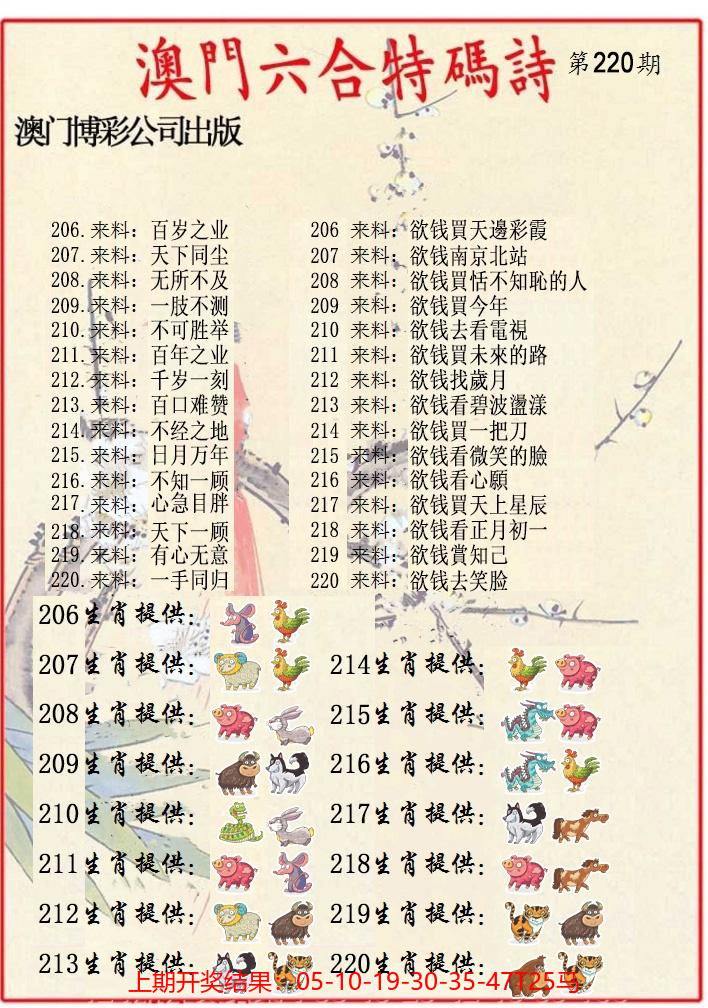 澳門六合特碼詩 第220期
澳门博彩公司出版
206.来料：百岁之业 206 来料：欲钱買天邊彩霞
207.来料：天下同尘 207 来料：欲钱南京北站
208.来料：无所不及 208 来料：欲钱買恬不知恥的人
209.来料：一肢不测 209 来料：欲钱買今年
210.来料：不可胜举 210 来料：欲钱去看電視
211.来料：百年之业 211 来料：欲钱買未來的路
212.来料：千岁一刻 212 来料：欲钱找歲月
213.来料：百口难赞 213 来料：欲钱看碧波盪漾
214.来料：不经之地 214 来料：欲钱買一把刀
215.来料：日月万年 215 来料：欲钱看微笑的臉
216.来料：不知一顾 216 来料：欲钱看心願
217.来料：心急目胖 217 来料：欲钱買天上星辰
218.来料：天下一顾 218 来料：欲钱看正月初一
219.来料：有心无意 219 来料：欲钱賞知己
220.来料：一手同归 220 来料：欲钱去笑脸
206生肖提供：
207生肖提供： 214生肖提供：
208生肖提供： 215生肖提供：
209生肖提供： 216生肖提供：
210生肖提供： 217生肖提供：
211生肖提供： 218生肖提供：
212生肖提供： 219生肖提供：
213生肖提供： 220生肖提供：
上期开奖结果：05-10-19-30-35-47T25马